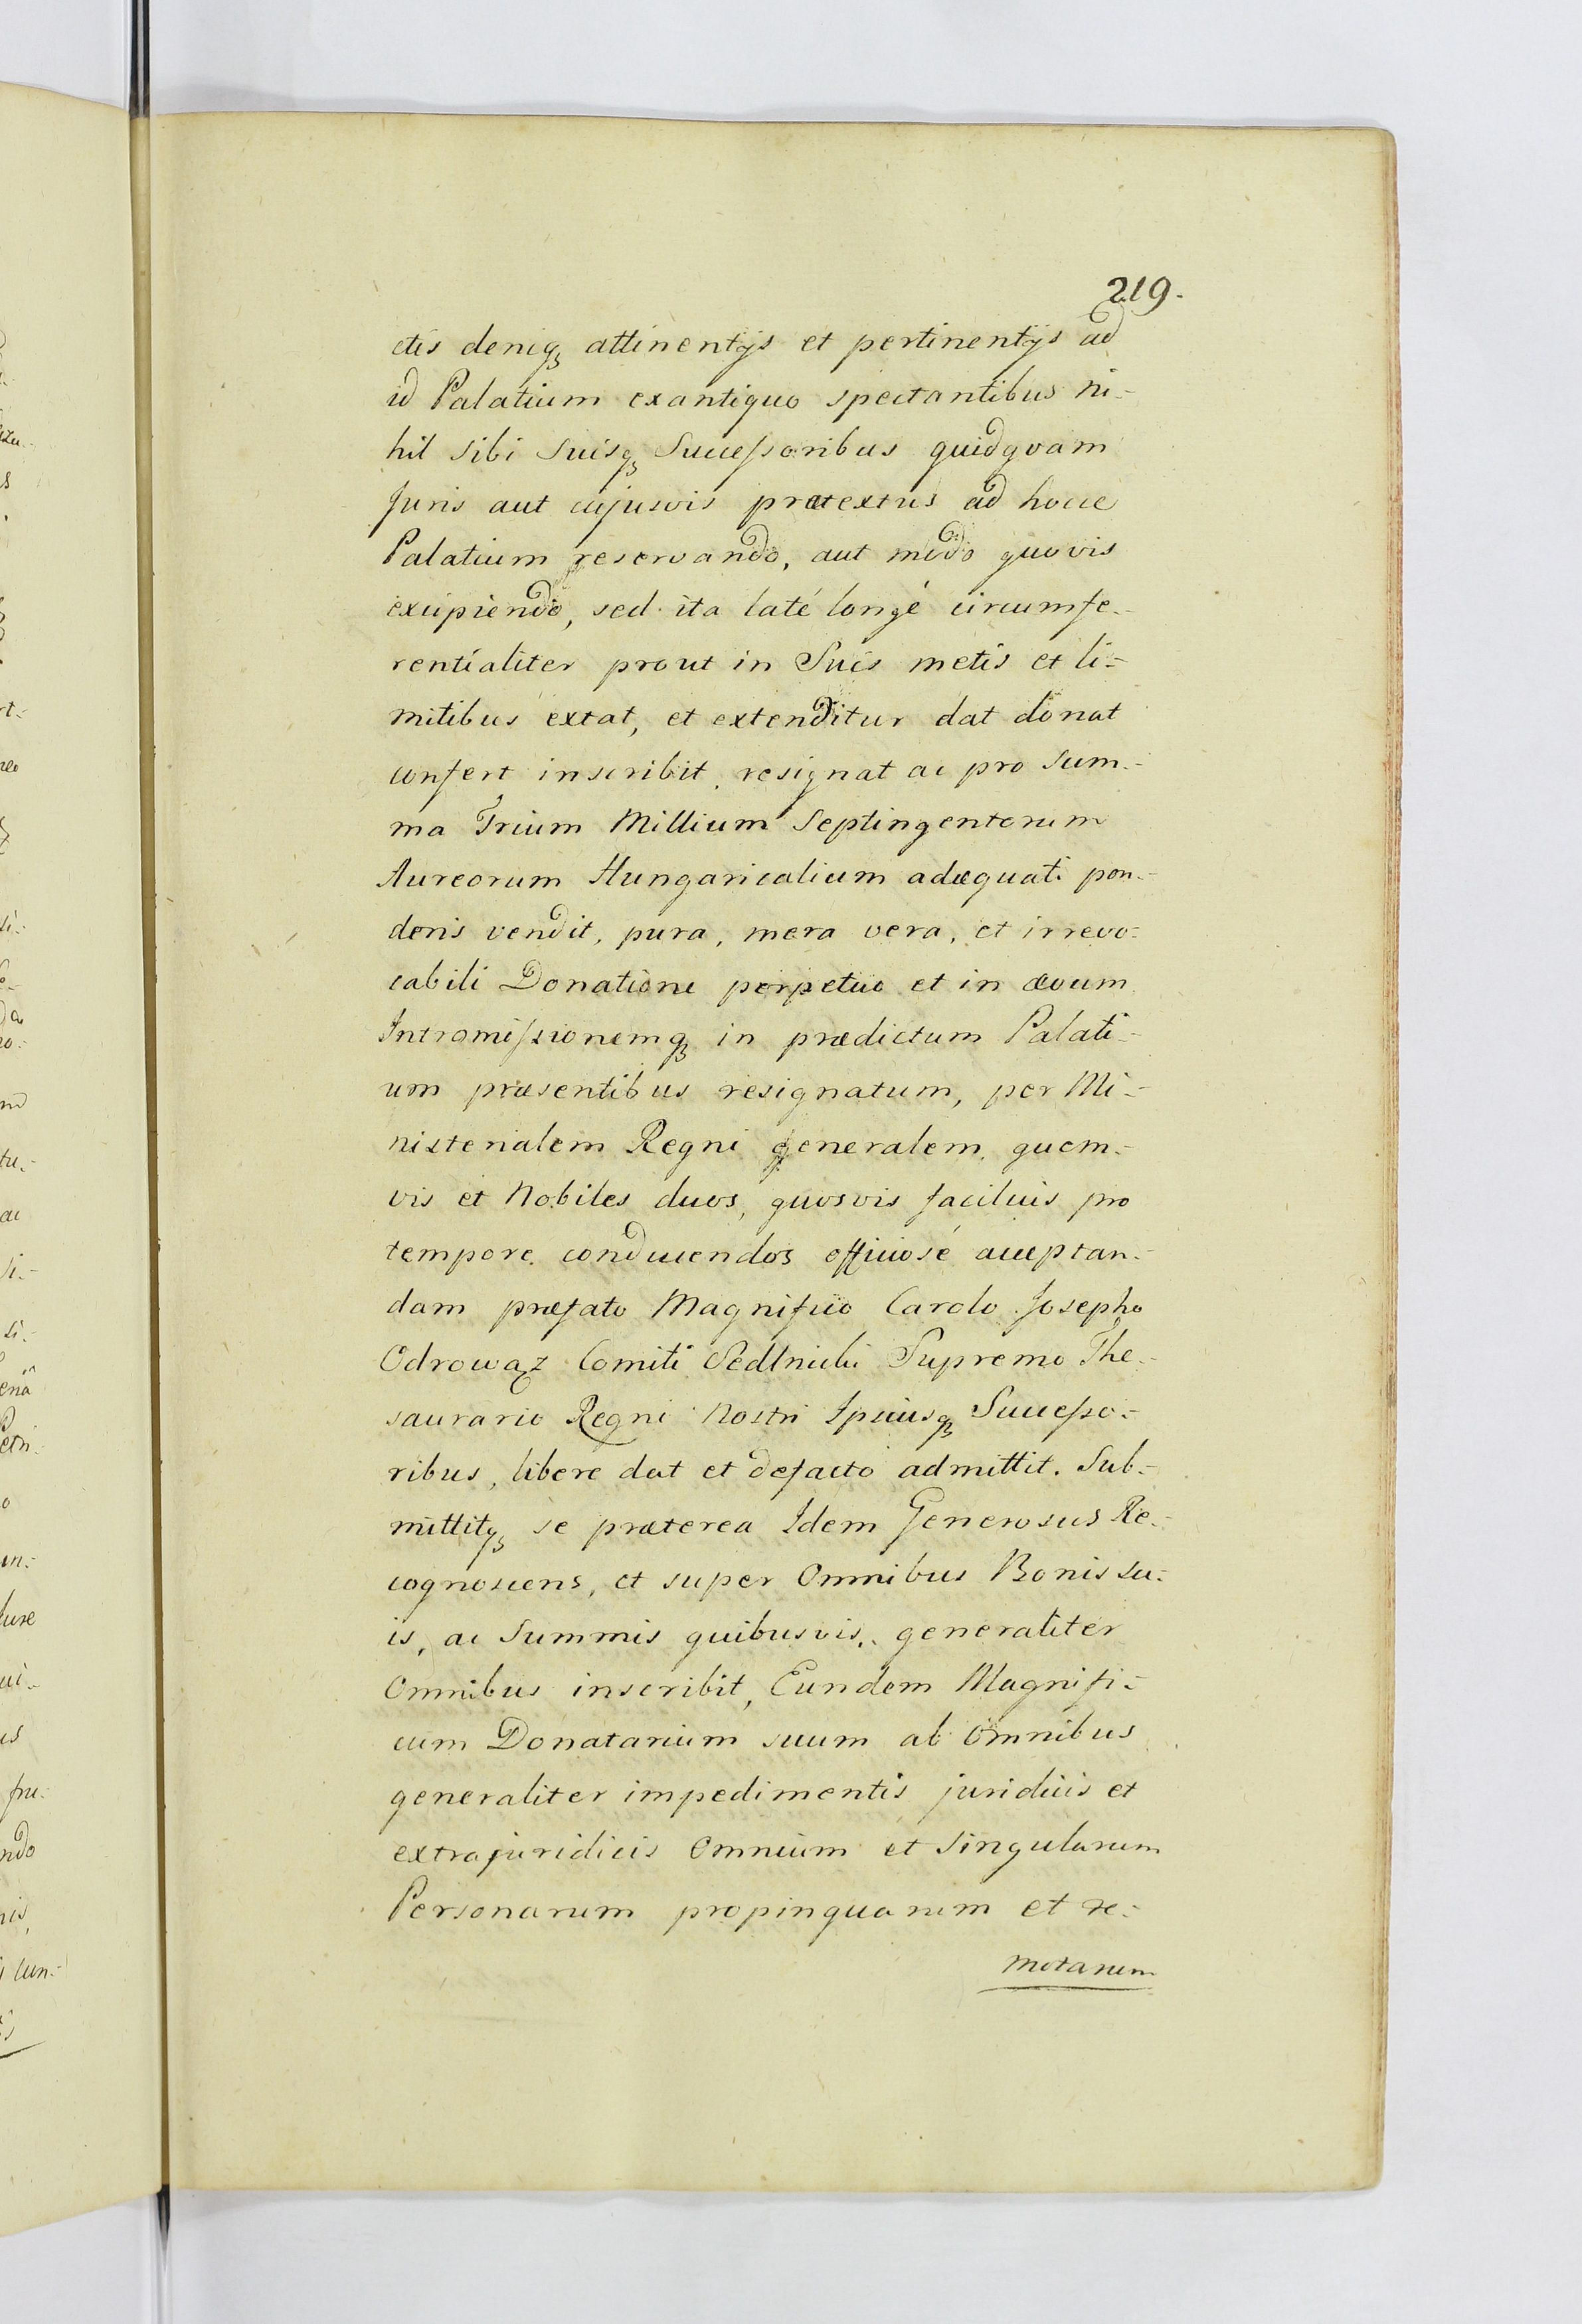 219.
ctis deniqꝫ attinentijs et pertinentijs ad
id Palatium exantiquo spectantibus ni-
hil sibi suisqꝫ Succeſsoribus quidquam
Juris aut cujusvis prætextus ad hocce
Palatium reservando, aut modo quovis
excipiendo, sed ita laté longé circumfe-
rentialiter prout in Suis metis et li-
mitibus extat, et extenditur dat donat
confert inscribit, resignat ac pro Sum-
ma Trium Millium Septingentorum
Aureorum Hungaricalium adæquati pon-
deris vendit, pura, mera vera, et irrevo-
cabili Donatione perpetuo et in ævum
Intromiſsionemqꝫ in prædictum Palati-
um præsentibus resignatum, per Mi-
nisterialem Regni generalem, quem-
vis et Nobiles duos, quosvis facilius pro
tempore conducendos officiosé acceptan-
dam præfato Magnifico Carolo Josepho
Odrowąz Comiti Sedlnicki Supremo The-
saurario Regni Nostri Ipsiusqꝫ Succeſso-
ribus, libere dat et defacto admittit. Sub-
mittitqꝫ se præterea Idem Generosus Re-
cognoscens, et super Omnibus Bonis su-
is, ac Summis quibusvis, generaliter
Omnibus inscribit, Eundem Magnifi-
cum Donatarium suum ab Omnibus
generaliter impedimentis juridicis et
extrajuridicis Omnium et Singularum
Personarum propinquarum et re-
motarum